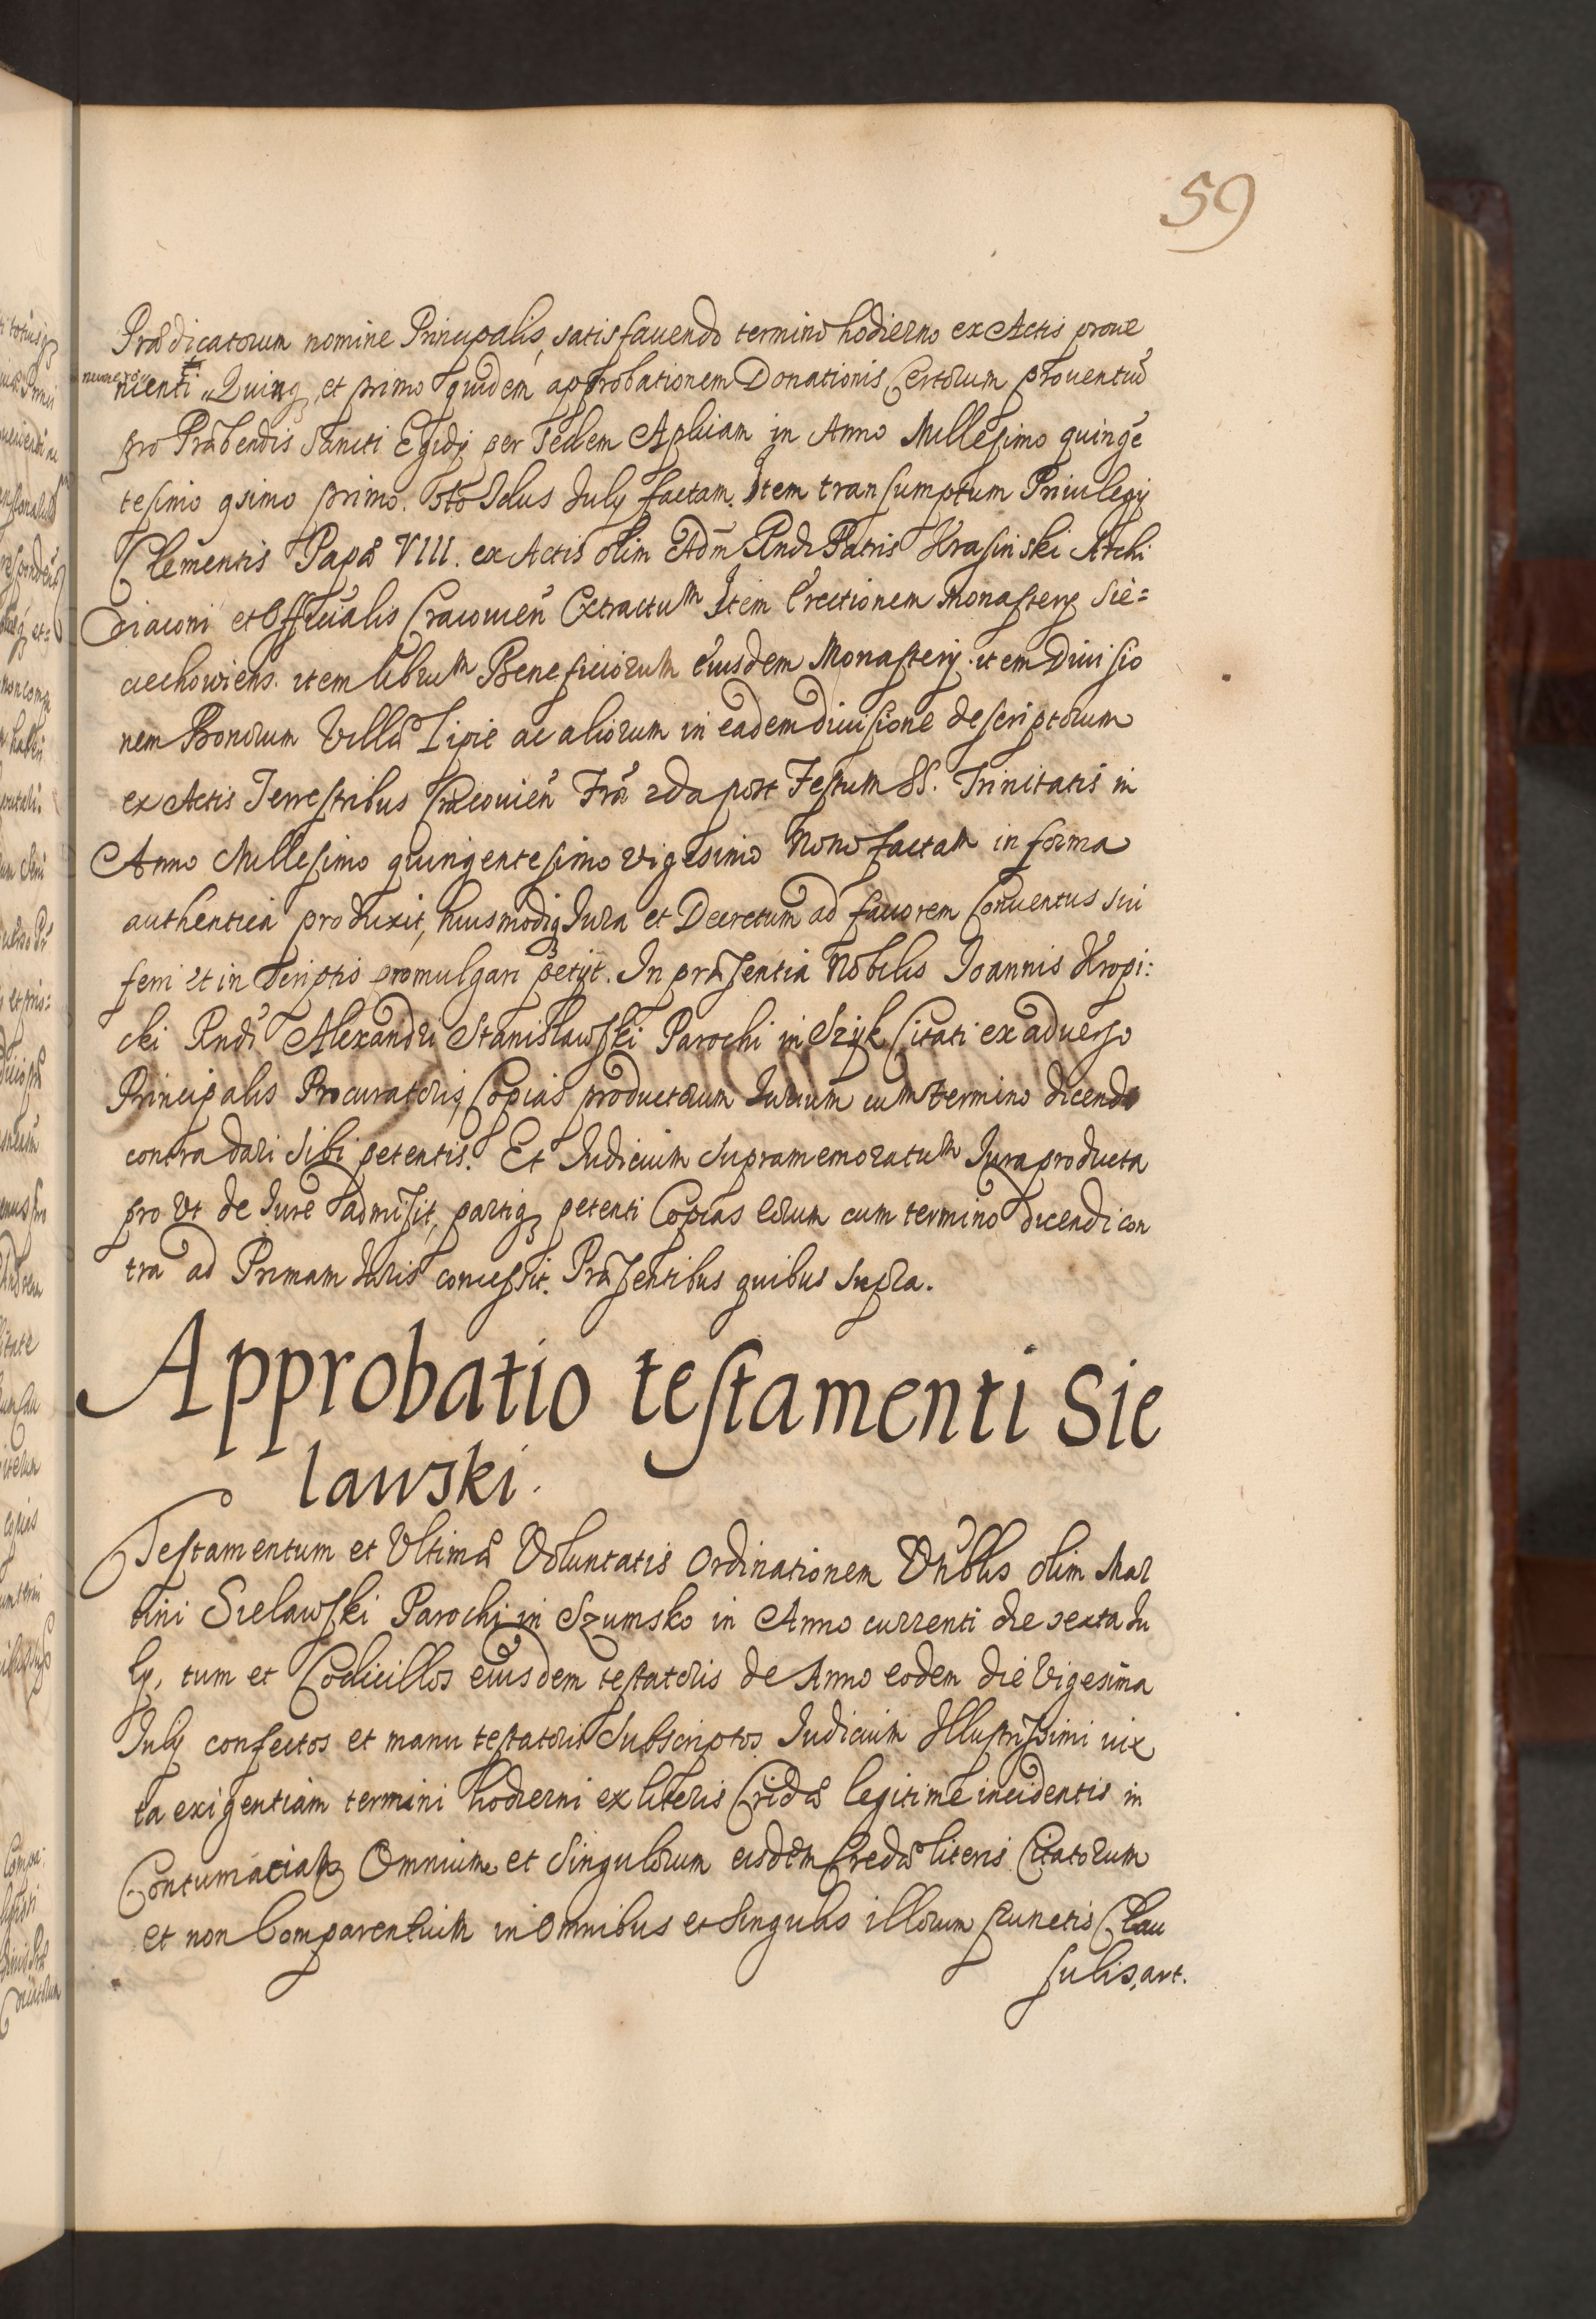 59
Prædicatorum nomine Principalis, satisfaciendo termino hodierno ex Actis prove
nienti numero Quinq, et primo quidem approbationem Donationis Certorum prouentuũ
pro Præbendis Sancti Egidij per Sedem Aplicam in Anno Millesimo quinge
tesimo gsimo primo. 8to Idus July factam. Item transumptum Priuilegij
Clementis Papæ VIII. ex Actis olim Adm Rndi Patris Krasinski Archi
diaconi et Officialis Cracouień Extractum Item Erectionem Monastery Sie=
ciechowiens. item librum Beneficiorum eiusdem Monastery. item Diuisio
nem Bonorum Villæ Lipie ac aliorum in eadem diuisione descriptorum
ex Actis Terrestribus Cracouień Frã 2da post Festum SS. Trinitatis in
Anno Millesimo quingentesimo vigesimo Nono factam in forma
authentica produxit, huiusmodiq Iura et Decretum ad fauorem Conuentus sui
ferri et in Scriptis promulgari petijt. In præsentia Nobilis Joannis Kropi:
cki Rndi Alexandri Stanisławski Parochi in Szyk Citati ex aduerso
Principalis Procuratoris, Copias productorum Iurium cum termino dicendi
contra dari sibi petentis. Et Iudicium Supramemoratum Iura producta
pro Vt de Iure admisit, partiq petenti Copias eorum cum termino dicendi con
tra ad Primam Iuris concessit. Præsentibus quibus supra.
Approbatio testamenti Sie
lawski.
Testamentum et Vltimæ Voluntatis Ordinationem Vnblis olim Mar
tini Sielawski Parochi in Szumsko in Anno currenti die sexta Iu
ly, tum et Codicillos eiusdem testatoris de Anno eodem die Vigesima
July confectos et manu testatoris Subscriptos Iudicium Illustrissimi iux
ta exigentiam termini hodierni ex literis Cridæ legitime incidentis in
Contumaciamq Omnium et Singulorum eisdem Credæ literis Citatorum
et non Comparentium in Omnibus et Singulis illorum punctis Clau
sulis, art.